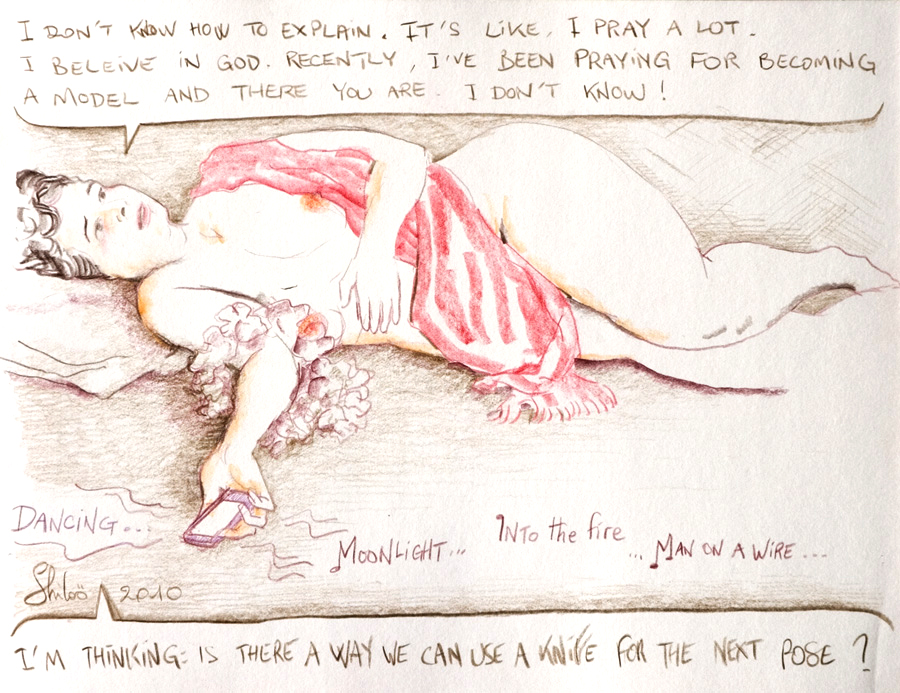 I DON'T KNOW HOW TO EXPLAIN. IT'S LIKE, I PRAY A LOT.
I BELEIVE IN GOD. RECENTLY, I'VE BEEN PRAYING FOR BECOMING
A MODEL AND THERE YOU ARE. I DON'T KNOW!
DANCING...
MOONLIGHT...
INTO the fire
... MAN ON A WIRE...
Shiloö 2010
I'M THINKING: IS THERE A WAY WE CAN USE A KNIFE FOR THE NEXT POSE?